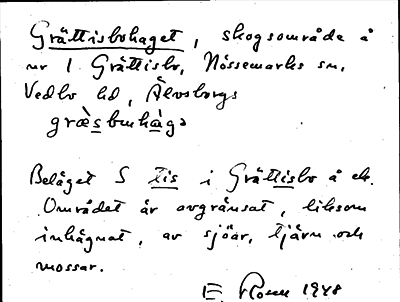 Grättisbohaget, skogsområde å
nr 1 Grättisbo, Nössemarks sn,
Vedbo hd, Älvsborgs
græ̀sbɯnhà̱gə
Beläget S tis i Grättisbo å ek.
Området är avgränsat, liksom
inhägnat, av sjöar, tjärn och
mossar.
E. Rosen 1948